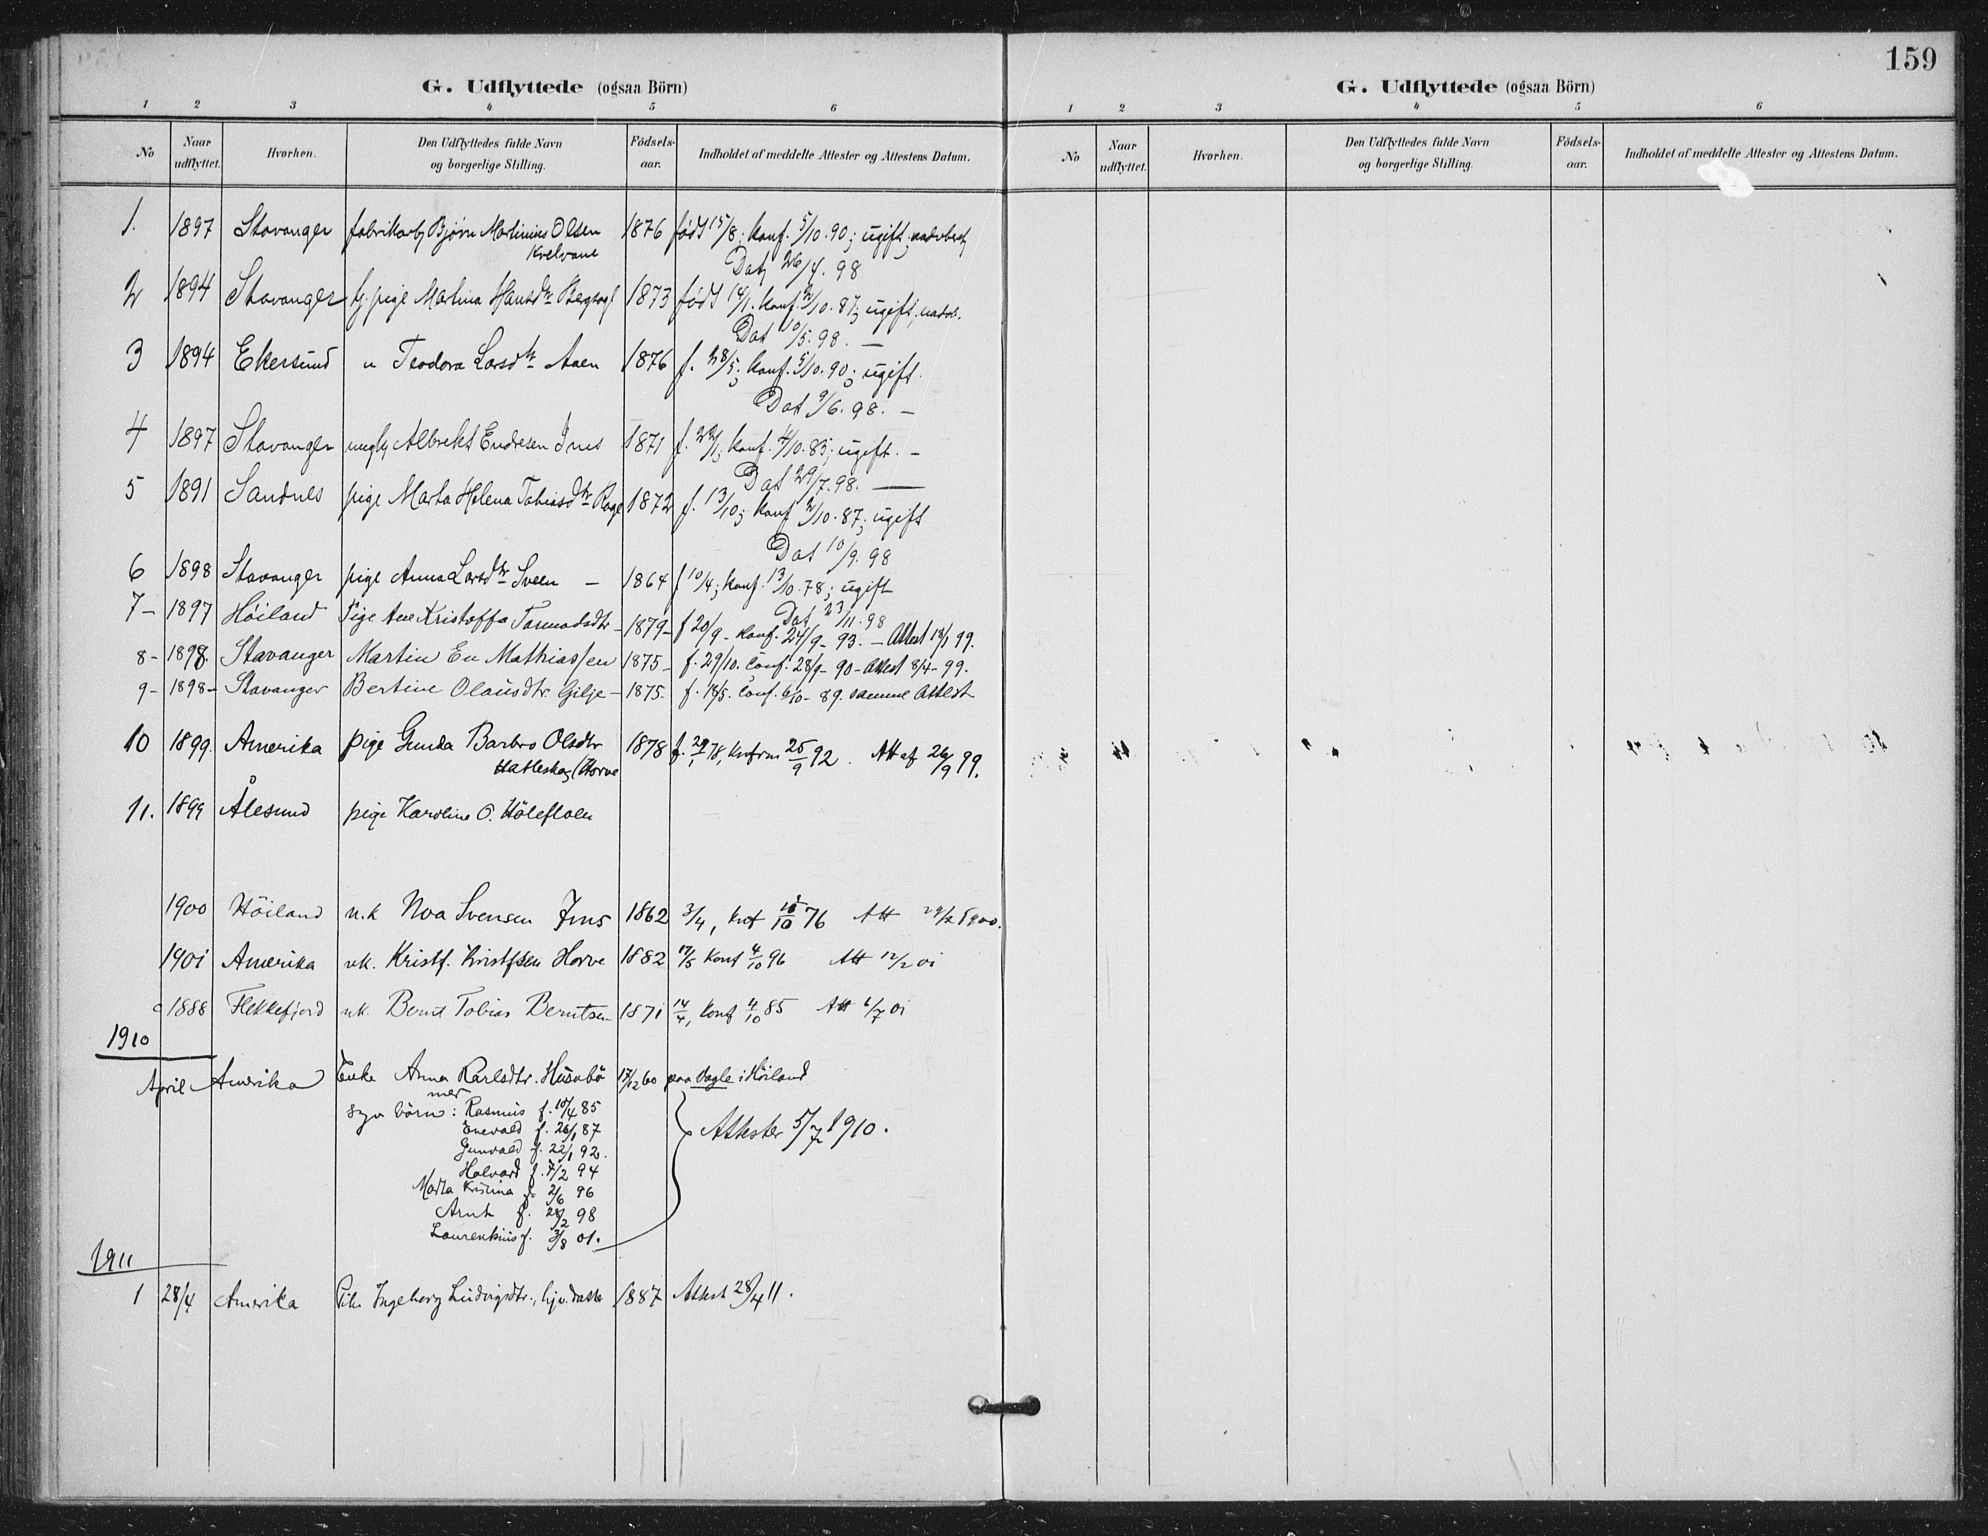 159
G. Udflyttede (ogsaa Börn)
1 2 3 4 5 6
No Naar udflyttet. Hvorhen. Den Udflyttedes fulde Navn og borgerlige Stilling. Fødsels-aar. Indholdet af meddelte Attester og Attestens Datum.
1. 1897 Stavanger fabrikarb. Bjørn Martinius Olsen 1876 født 15/8; konf. 5/10.90; ugift;
Kvelvane Dat. 26/4. 98
2 1894 Stavanger tj. pige Martina Hansdtr 1873 født 14/1. konf. 2/10.87; ugift;
Dat 10/5.98. —
3 1894 Ekersund " Teodora Larsdtr Aaen 1876 f. 28/5; konf. 5/10.90; ugift.
Dat 9/6.98. —
4 1897 Stavanger ungk. Albrekt Endresen Ims 1871 f. 22/1; konf. 4/10.85; ugift. —
Dat 29/7.98. —
5 1891 Sandnes pige Marta Helena Tobiasdtr 1872 f. 13/10; konf 2/10.87; ugift
Dat 10/9.98
6 1898 Stavanger pige Anna Larsdtr Sveen — 1864 f 10/4; konf. 13/10.78; ugift
Dat 23/11.98
7 – 1897 Höiland Pige Ane Kristoffa Tormodsdtr – 1879 – f 20/9 – konf. 24/9 – 93. – Attest 18/1 99.
8 – 1898. Stavanger Martin En Mathiassen 1875 – f. 29/10. Conf. 28/9 – 90 – Attest 8/4 – 99.
9 – 1898 – Stavanger Bertine Olausdtr Gilje – 1875 – f. 18/5. Conf. 6/10 – 89. samme Attest
10 1899. Amerika pige Gunda Barbro Olsdtr 1878 f. 29/1 78, konfirm 25/9 92. Att af 26/9 99.
Hatleskog (Horve
11. 1899 Ålesund pige Karoline O.
1900 Höiland u.k Noa Svensen Ims 1862 3/4, knf 76 Att 1900.
1901 Amerika uk. Kristf. Kristfsen Horve 1882 17/5 Konf 4/10 96 Att 12/2 01
1888 Flekkefjord uk. Bernt Tobias Berntsen 1871 14/4, konf 4/10 85 Att 6/7 01
1910
April Amerika Enke Anna Karlsdtr. Husebö 17/12 60 paa Vagle i Höiland
med
syv börn: Rasmus f. 10/4 85
Enevald f. 26/1 87
Gunvald f. 22/1 92.
Halvard f. 7/2 94
Marta Kristina f. 2/6 96
Arnt f. 28/2 98
Laurentius f. 3/8 01.
Attester 5/7 1910.
1911
1 28/4 Amerika Pike Ingeborg Ludvigsdtr., 1887 Attest 28/4 11.
G. Udflyttede (ogsaa Börn)
1 2 3 4 5 6
No Naar udflyttet. Hvorhen. Den Udflyttedes fulde Navn og borgerlige Stilling. Fødsels-aar. Indholdet af meddelte Attester og Attestens Datum.